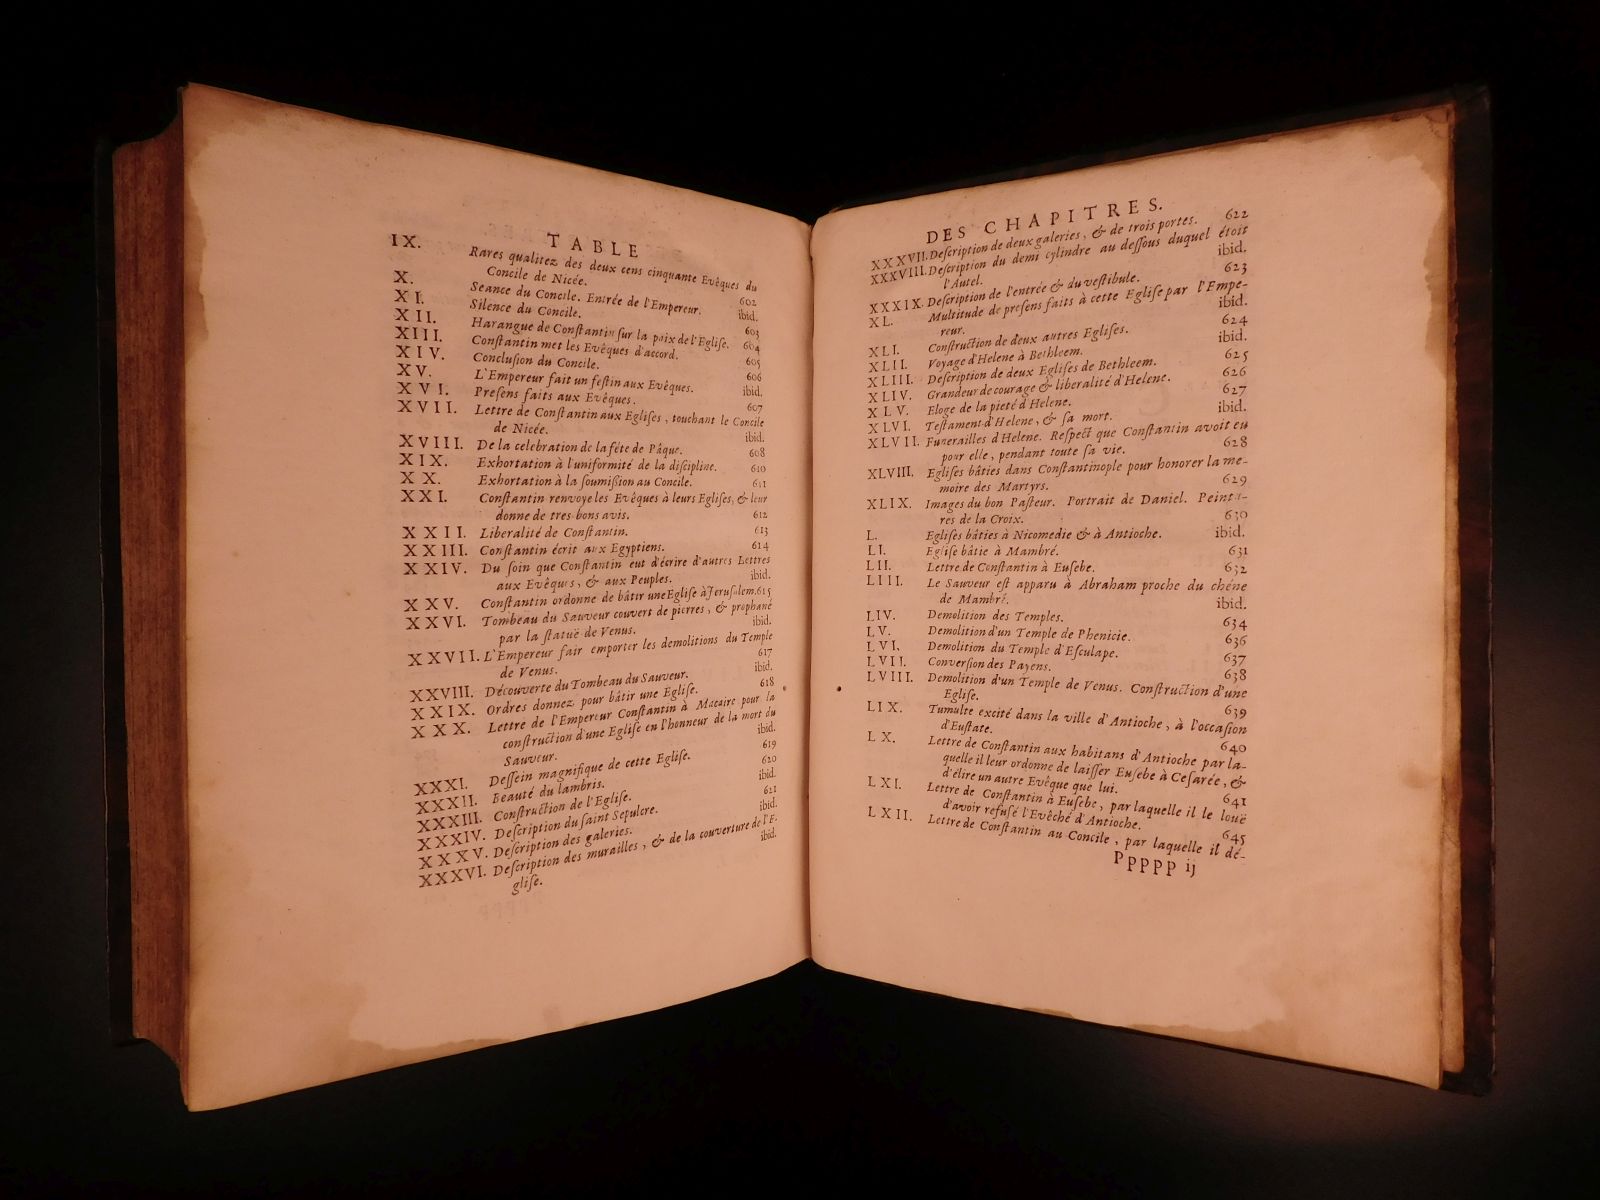 TABLE
IX. Rares qualitez des deux cens cinquante Evêques du
Concile de Nicée. 602
X. Seance du Concile. Entrée de l'Empereur. ibid.
XI. Silence du Concile. 603
XII. Harangue de Constantin sur la paix de l'Eglise. 604
XIII. Constantin met les Evêques d'accord. 605
XIV. Conclusion du Concile. 606
XV. L'Empereur fait un festin aux Evêques. ibid.
XVI. Presens faits aux Evêques. 607
XVII. Lettre de Constantin aux Eglises, touchant le Concile
de Nicée. ibid.
XVIII. De la celebration de la féte de Pâque. 608
XIX. Exhortation à l'uniformité de la discipline. 610
XX. Exhortation à la soumission au Concile. 611
XXI. Constantin renvoye les Evêques à leurs Eglises, & leur
donne de tres-bons avis. 612
XXII. Liberalité de Constantin. 613
XXIII. Constantin écrit aux Egyptiens. 614
XXIV. Du soin que Constantin eut d'écrire d'autres Lettres
aux Evêques, & aux Peuples. ibid.
XXV. Constantin ordonne de bâtir une Eglise à Jerusalem. 615
XXVI. Tombeau du Sauveur couvert de pierres, & prophané
par la statuë de Venus. ibid.
XXVII. L'Empereur fair emporter les demolitions du Temple
de Venus. 617
XXVIII. Découverte du Tombeau du Sauveur. ibid.
XXIX. Ordres donnez pour bâtir une Eglise. 618
XXX. Lettre de l'Empereur Constantin à Macaire pour la
construction d'une Eglise en l'honneur de la mort du
Sauveur. ibid.
XXXI. Dessein magnifique de cette Eglise. 619
XXXII. Beauté du lambris. 620
XXXIII. Construction de l'Eglise. ibid.
XXXIV. Description du saint Sepulcre. 621
XXXV. Description des galeries. ibid.
XXXVI. Description des murailles, & de la couverture de l'E-
glise. ibid.
DES CHAPITRES.
XXXVII. Description de deux galeries, & de trois portes. 622
XXXVIII. Description du demi cylindre au dessous duquel étoit
l'Autel. ibid.
XXXIX. Description de l'entrée & du vestibule. 623
XL. Multitude de presens faits à cette Eglise par l'Empe-
reur. ibid.
XLI. Construction de deux autres Eglises. 624
XLII. Voyage d'Helene à Bethleem. ibid.
XLIII. Description de deux Eglises de Bethleem. 625
XLIV. Grandeur de courage & liberalité d'Helene. 626
XLV. Eloge de la pieté d'Helene. 627
XLVI. Testament d'Helene, & sa mort. ibid.
XLVII. Funerailles d'Helene. Respect que Constantin avoit eu
pour elle, pendant toute sa vie. 628
XLVIII. Eglises bâties dans Constantinople pour honorer la me-
moire des Martyrs. 629
XLIX. Images du bon Pasteur. Portrait de Daniel. Peintu-
res de la Croix. 630
L. Eglises bâties à Nicomedie & à Antioche. ibid.
LI. Eglise bâtie à Mambré. 631
LII. Lettre de Constantin à Eusebe. 632
LIII. Le Sauveur est apparu à Abraham proche du chéne
de Mambré. ibid.
LIV. Demolition des Temples. 634
LV. Demolition d'un Temple de Phenicie. 636
LVI. Demolition du Temple d'Esculape. 637
LVII. Conversion des Payens. 638
LVIII. Demolition d'un Temple de Venus. Construction d'une
Eglise. 639
LIX. Tumulte excité dans la ville d'Antioche, à l'occasion
d'Eustate. 640
LX. Lettre de Constantin aux habitans d'Antioche par la-
quelle il leur ordonne de laisser Eusebe à Cesarée, &
d'élire un autre Evêque que lui. 641
LXI. Lettre de Constantin à Eusebe, par laquelle il le louë
d'avoir refusé l'Evêché d'Antioche. 645
LXII. Lettre de Constantin au Concile, par laquelle il dé-
Ppppp ij